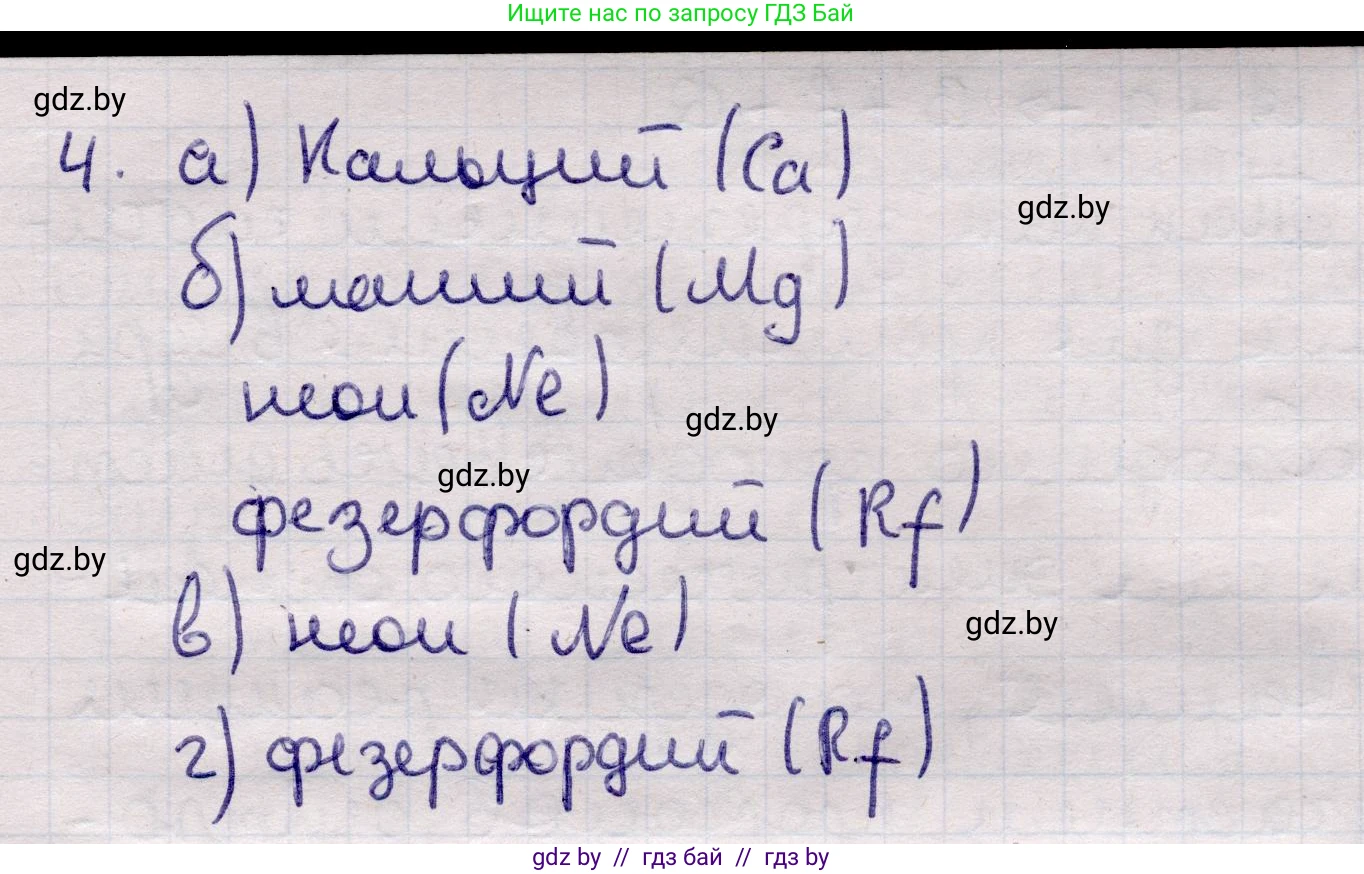 Ищите нас по запросу ГДЗ Бай
gdz.by
4. а) Кальций (Ca)
gdz.by
б) магний (Mg)
неон (Ne)
gdz.by
gdz.by
фезерфордий (Rf)
gdz.by
в) неон (Ne)
gdz.by
г) фезерфордий (Rf)
gdz by // гдз бай // гдз by